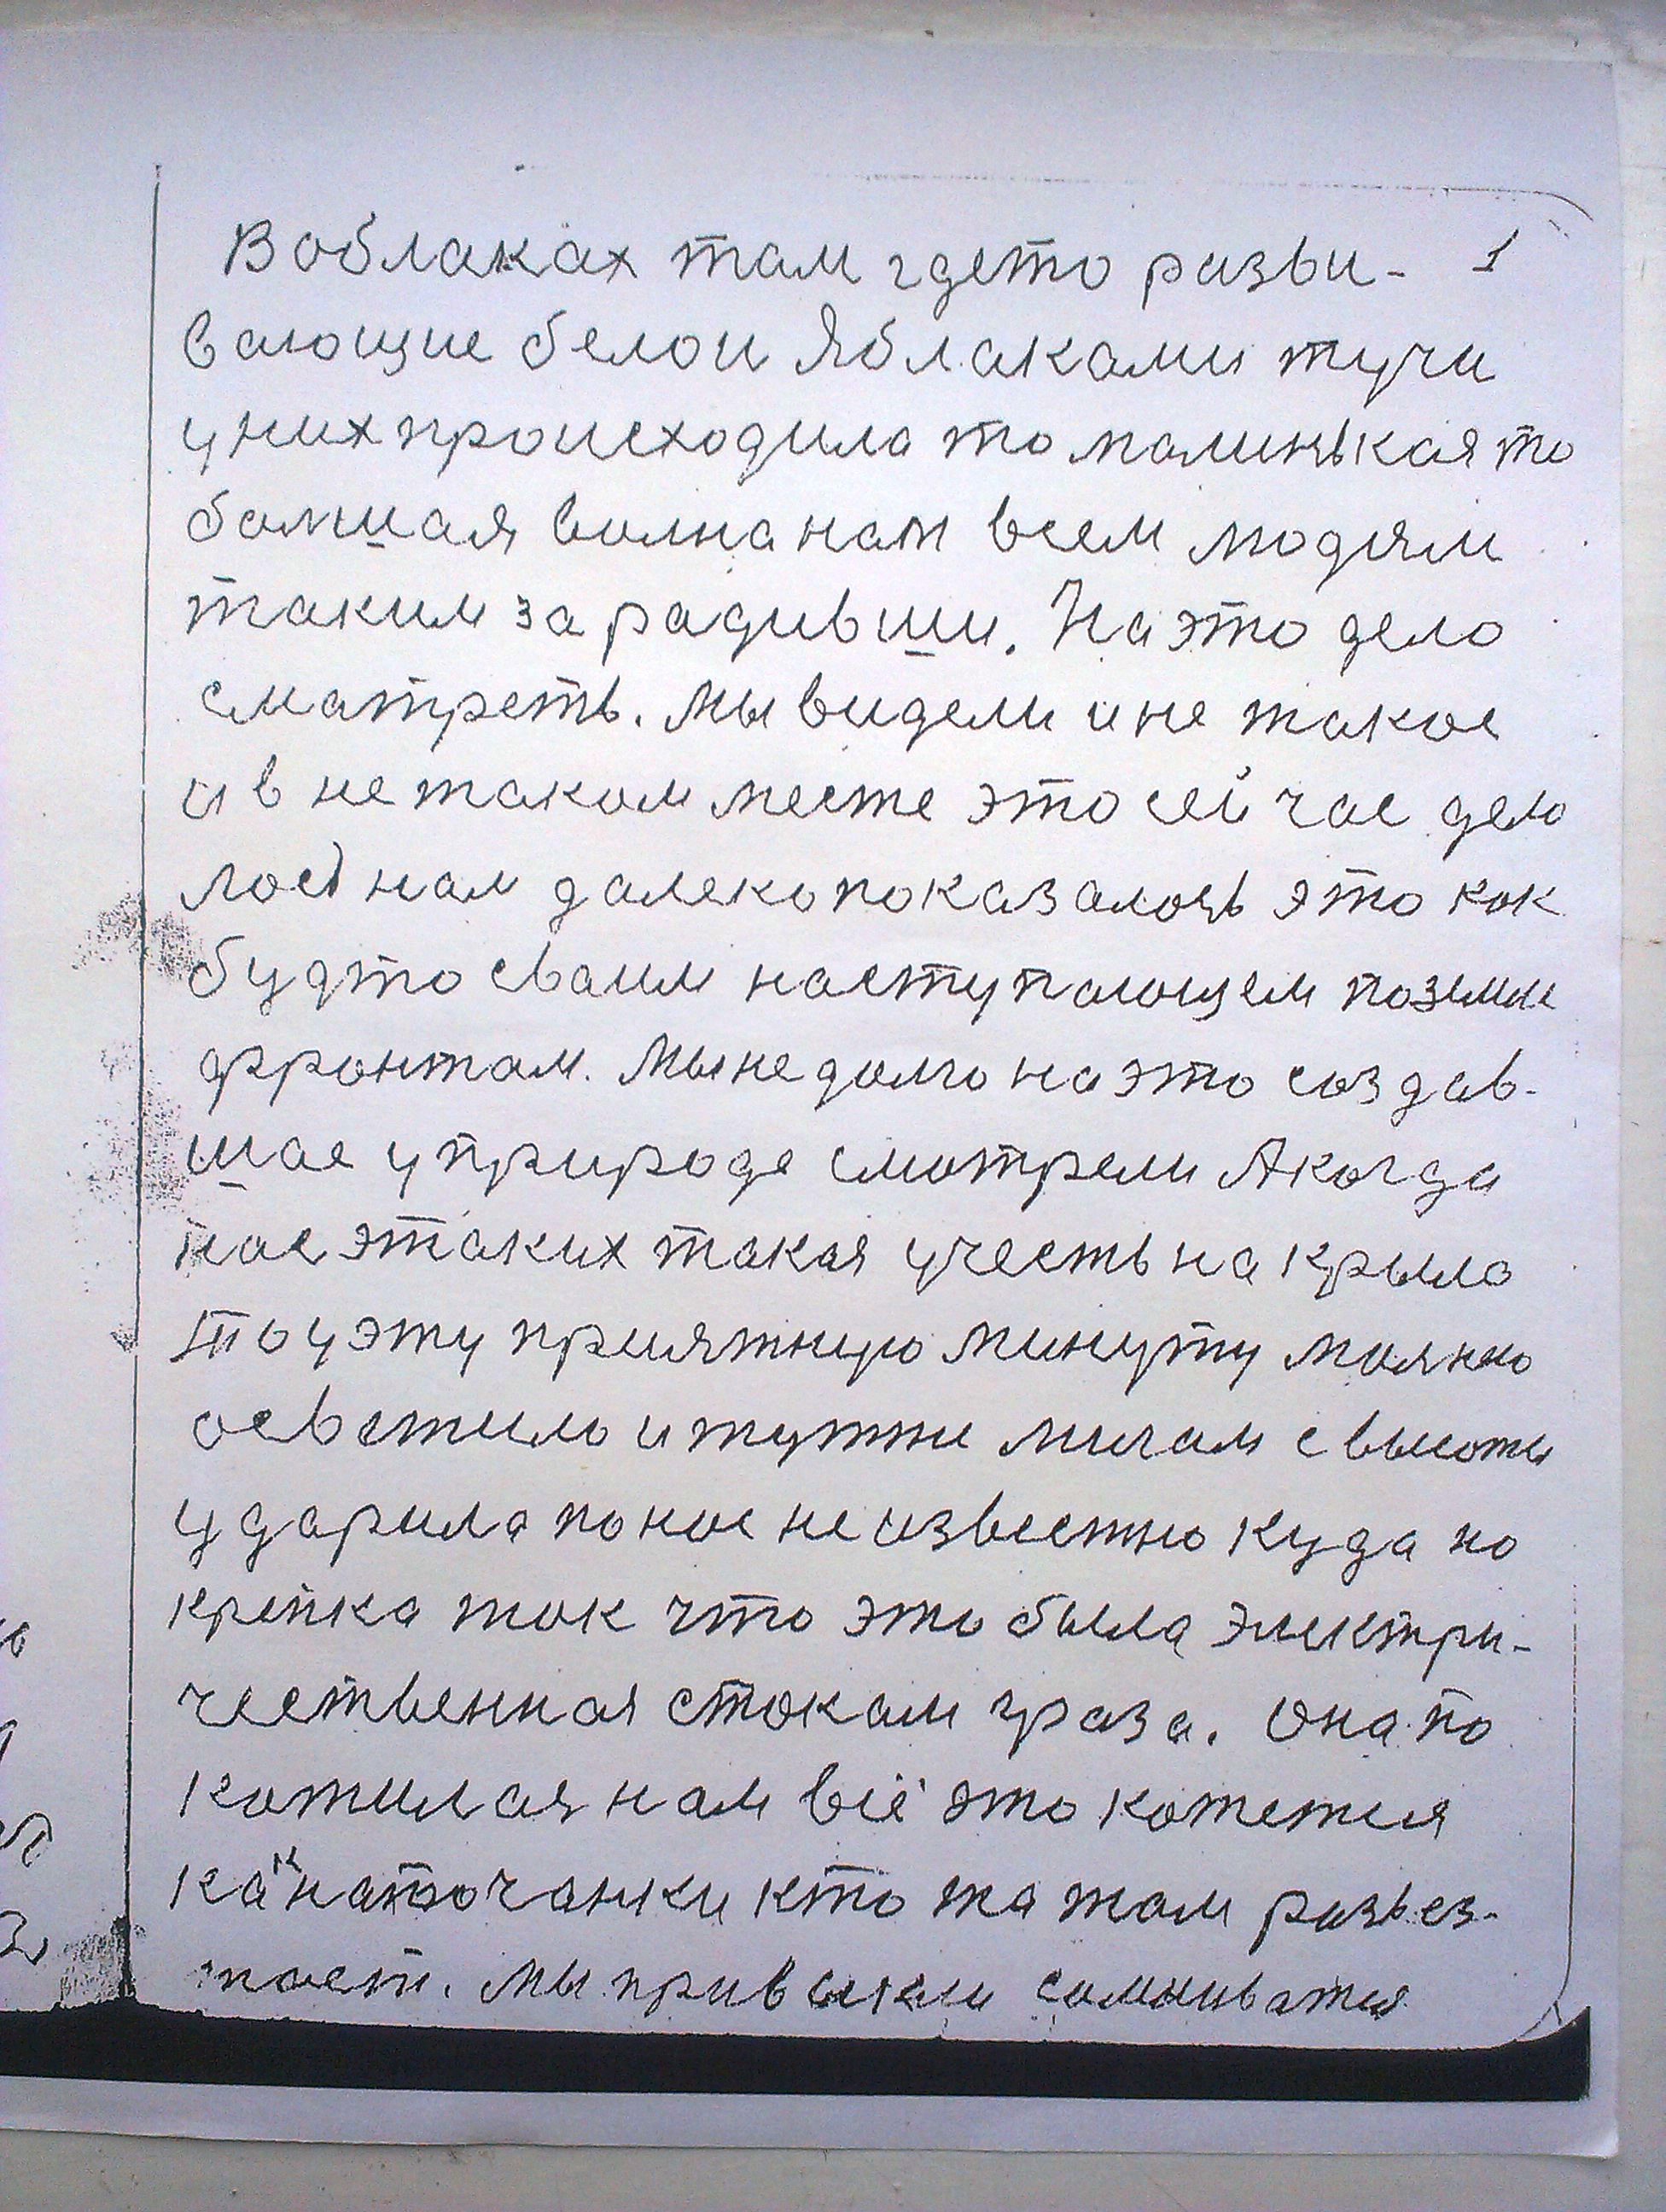 В облаках там гдето разви- 1
вающие белои Яблаками тучи
у них происходила то малинькая то
большая волна нам всем людям
таким зарадивши. На это дело
сматреть. Мы видели и не такое
и в не таком месте это сейчас дело
лось нам далеко показалось это как
будто сваим наступающем позимим
фронтам. Мы не долго на это создав-
шае у природе смотрели А когда
нас этаких такая учесть накрыло
то у эту приятную минуту молнею
осветило и тутже мигам с высоты
ударила по нас не известно куда но
крепка так что это была электри-
чественная стокам граза. Она по
катилася нам всё это кажется
как на точанки кто жа там разьез-
жает. Мы привыкли сомниватся